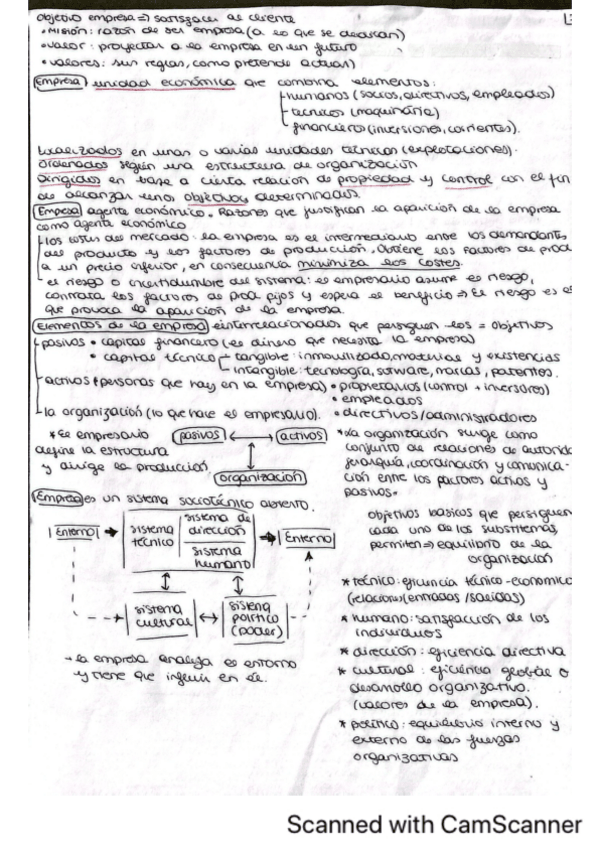 objetivo empresa => satisfacer al cliente
• Misión: razón de ser empresa (a lo que se dedican)
• valor: proyectar a la empresa en un futuro
• valores: sus reglas, como pretende actuar)
Empresa unidad económica que combina elementos:
humanos (socios, directivos, empleados)
técnicos (maquinaria)
financieros (inversiones, corrientes).
Localizados en unas o varias unidades técnicas (explotaciones).
Ordenados según una estructura de organización
Dirigidos en base a cierta relación de propiedad y control con el fin
de alcanzar unos objetivos determinados.
Empresa agente económico. Razones que justifican la aparición de la empresa
como agente económico
los costes del mercado: la empresa es el intermediario entre los demandantes
del producto y los factores de producción. Obtiene los factores de prod
a un precio inferior, en consecuencia minimiza los costes.
el riesgo o incertidumbre del sistema: el empresario asume el riesgo,
contrata los factores de prod fijos y espera el beneficio => El riesgo es el
que provoca la aparición de la empresa.
Elementos de la empresa interrelacionados que persiguen los = objetivos
pasivos • capital financiero (el dinero que necesita la empresa)
• capital técnico tangible: inmovilizado, material y existencias
intangible: tecnología, software, marcas, patentes.
activos (personas que hay en la empresa) • propietarios (control + inversores)
• empleados
la organización (lo que hace el empresario). • directivos/administradores
* El empresario
define la estructura
y dirige la producción.
pasivos activos
organización
*La organización surge como
conjunto de relaciones de autorida
jerarquía, coordinación y comunica-
ción entre los factores activos y
pasivos.
Empresa es un sistema sociotécnico abierto.
Entorno
sistema técnico
sistema de dirección
sistema humano
Entorno
sistema cultural
sistema político (poder)
→ la empresa analiza el entorno
y tiene que influir en él.
objetivos básicos que persiguen
cada uno de los subsistemas,
permiten => equilibrio de la
organización
* técnico: eficiencia técnico-economica
(relaciones entradas / salidas)
* humano: satisfacción de los
individuos
* dirección: eficiencia directiva
* cultural: eficiencia global o
desarrollo organizativo.
(valores de la empresa).
* político: equilibrio interno y
externo de las fuerzas
organizativas
Scanned with CamScanner